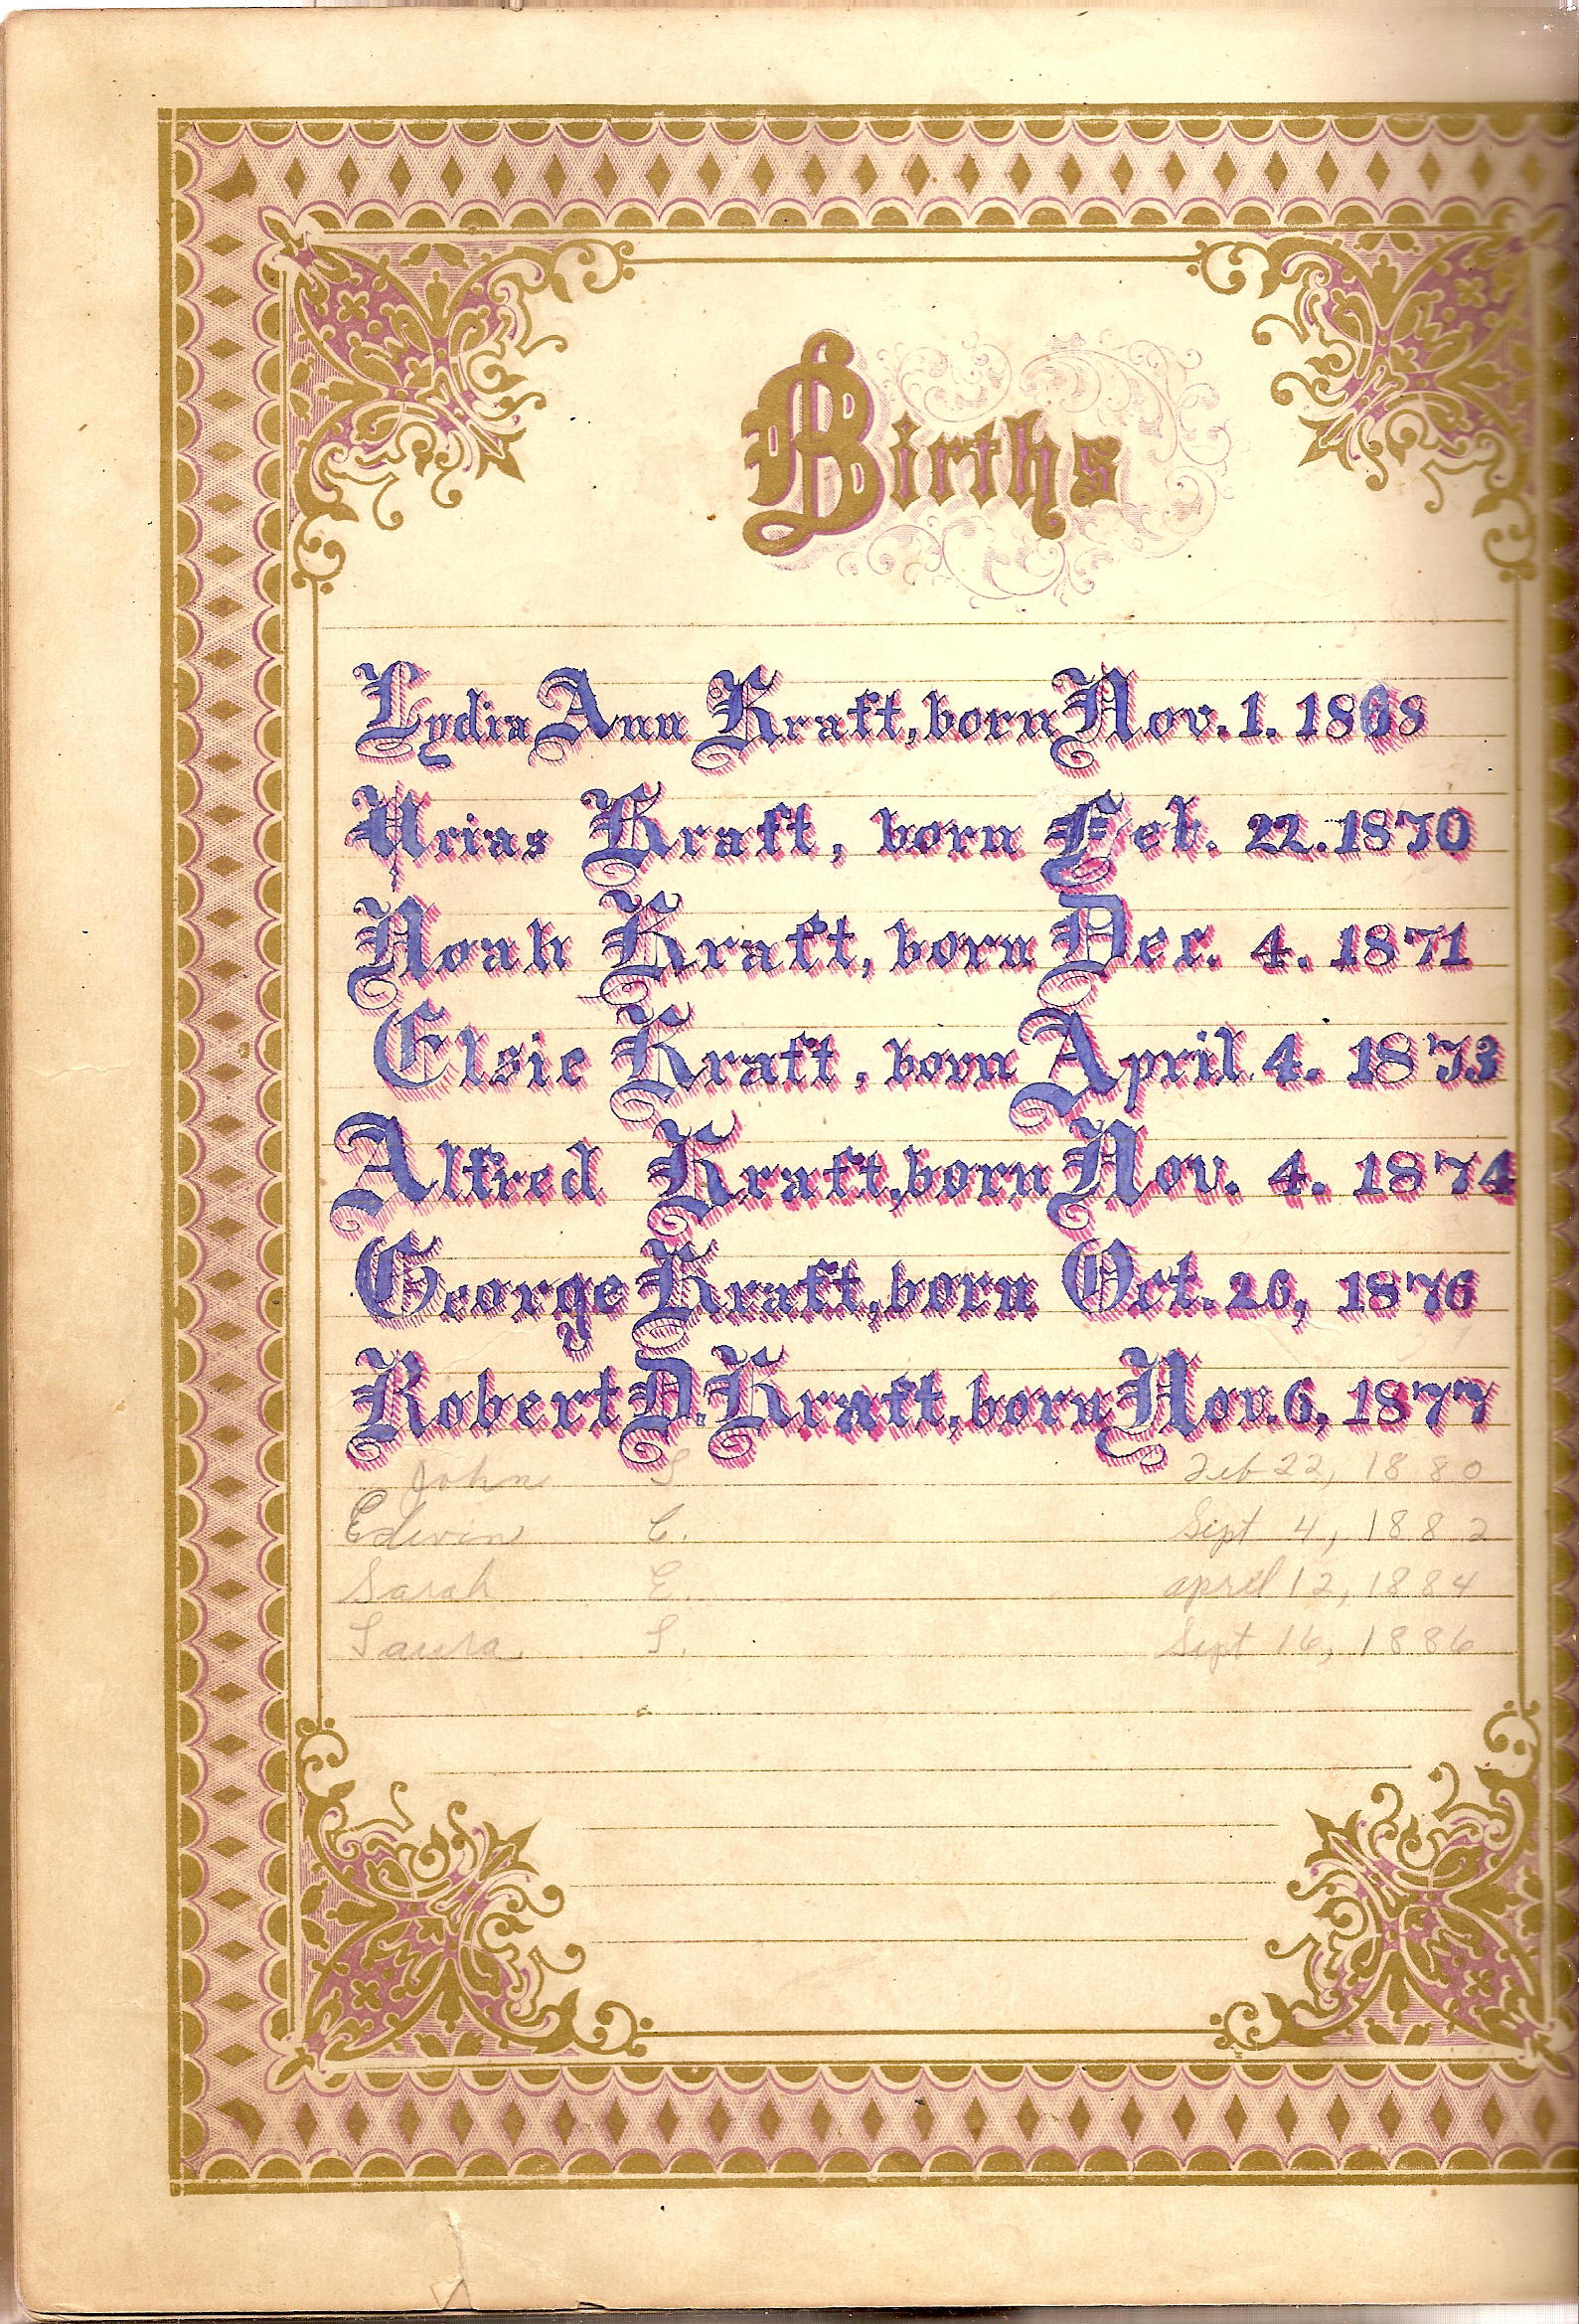 Births
Lydia Ann Kraft, born Nov. 1. 1868
Urias Kraft, born Feb. 22. 1870
Noah Kraft, born Dec. 4. 1871
Elsie Kraft, born April 4. 1873
Alfred Kraft, born Nov. 4. 1874
George Kraft, born Oct. 26, 1876
Robert D. Kraft, born Nov. 6, 1877
John S Feb 22, 1880
Edwin C. Sept 4, 1882
Sarah E. april 12, 1884
Laura S. Sept 16, 1886